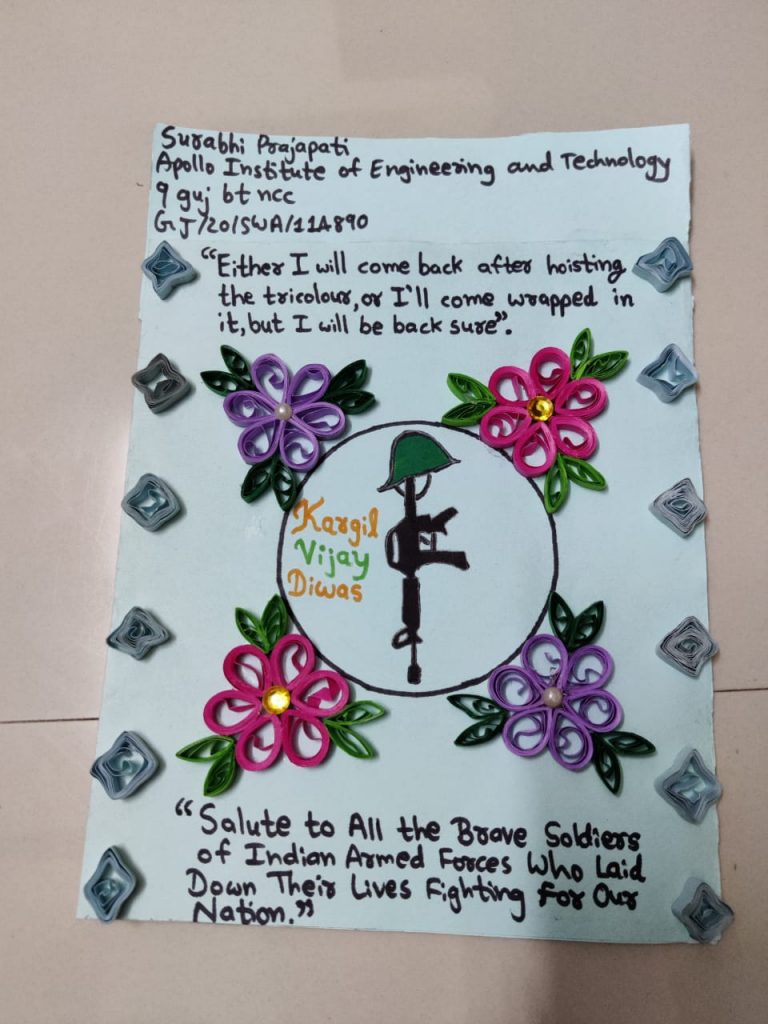 Surabhi Prajapati
Apollo Institute of Engineering and Technology
9 guj bt ncc
GJ/20/SWA/11A890
“Either I will come back after hoisting
the tricolour, or I'll come wrapped in
it, but I will be back sure”.
Kargil
Vijay
Diwas
“Salute to All the Brave Soldiers
of Indian Armed Forces Who Laid
Down Their Lives Fighting For Our
Nation.”